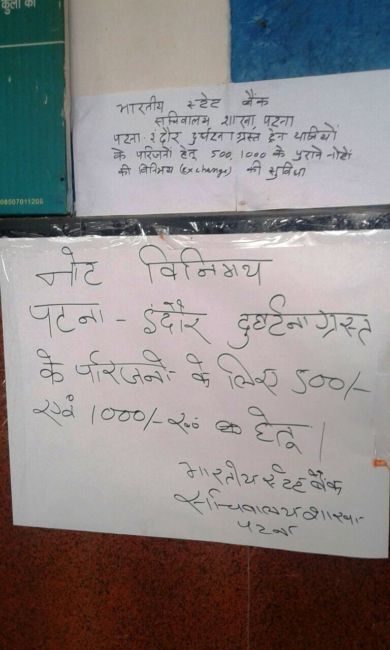 कुर्ला का
08507011205
भारतीय स्टेट बैंक
सचिवालय शाखा पटना
पटना इंदौर दुर्घटना ग्रस्त ट्रेन यात्रियों
के परिजनों हेतु 500, 1000 के पुराने नोटों
की विनिमय (Exchange) की सुविधा
नोट विनिमय
पटना - इंदौर दुर्घटनाग्रस्त
के परिजनों के लिए 500/-
एवं 1000/- रू० हेतू।
भारतीय स्टेट बैंक
सचिवालय शाखा
पटना